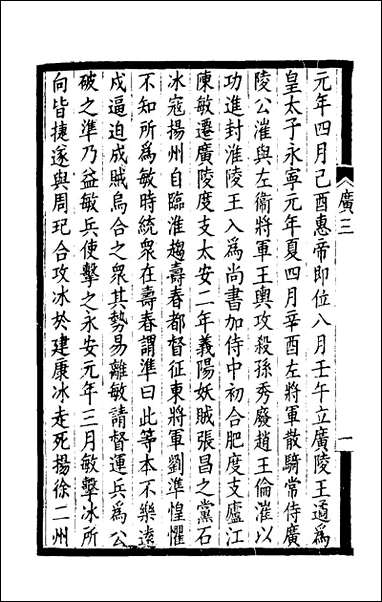 元年四月己酉惠帝即位八月壬午立廣陵王遹爲
皇太子永寧元年夏四月辛酉左將軍散騎常侍廣
陵公漼與左衞將軍王輿攻殺孫秀廢趙王倫漼以
功進封淮陵王入爲尚書加侍中初合肥度支廬江
陳敏遷廣陵度支太安二年義陽妖賊張昌之黨石
冰寇揚州自臨淮趨壽春都督征東將軍劉準惶懼
不知所爲敏時統衆在壽春謂準曰此等本不樂遠
戍逼迫成賊烏合之衆其勢易離敏請督運兵爲公
破之準乃益敏兵使擊之永安元年三月敏擊冰所
向皆捷遂與周玘合攻冰於建康冰走死揚徐二州
廣三
一